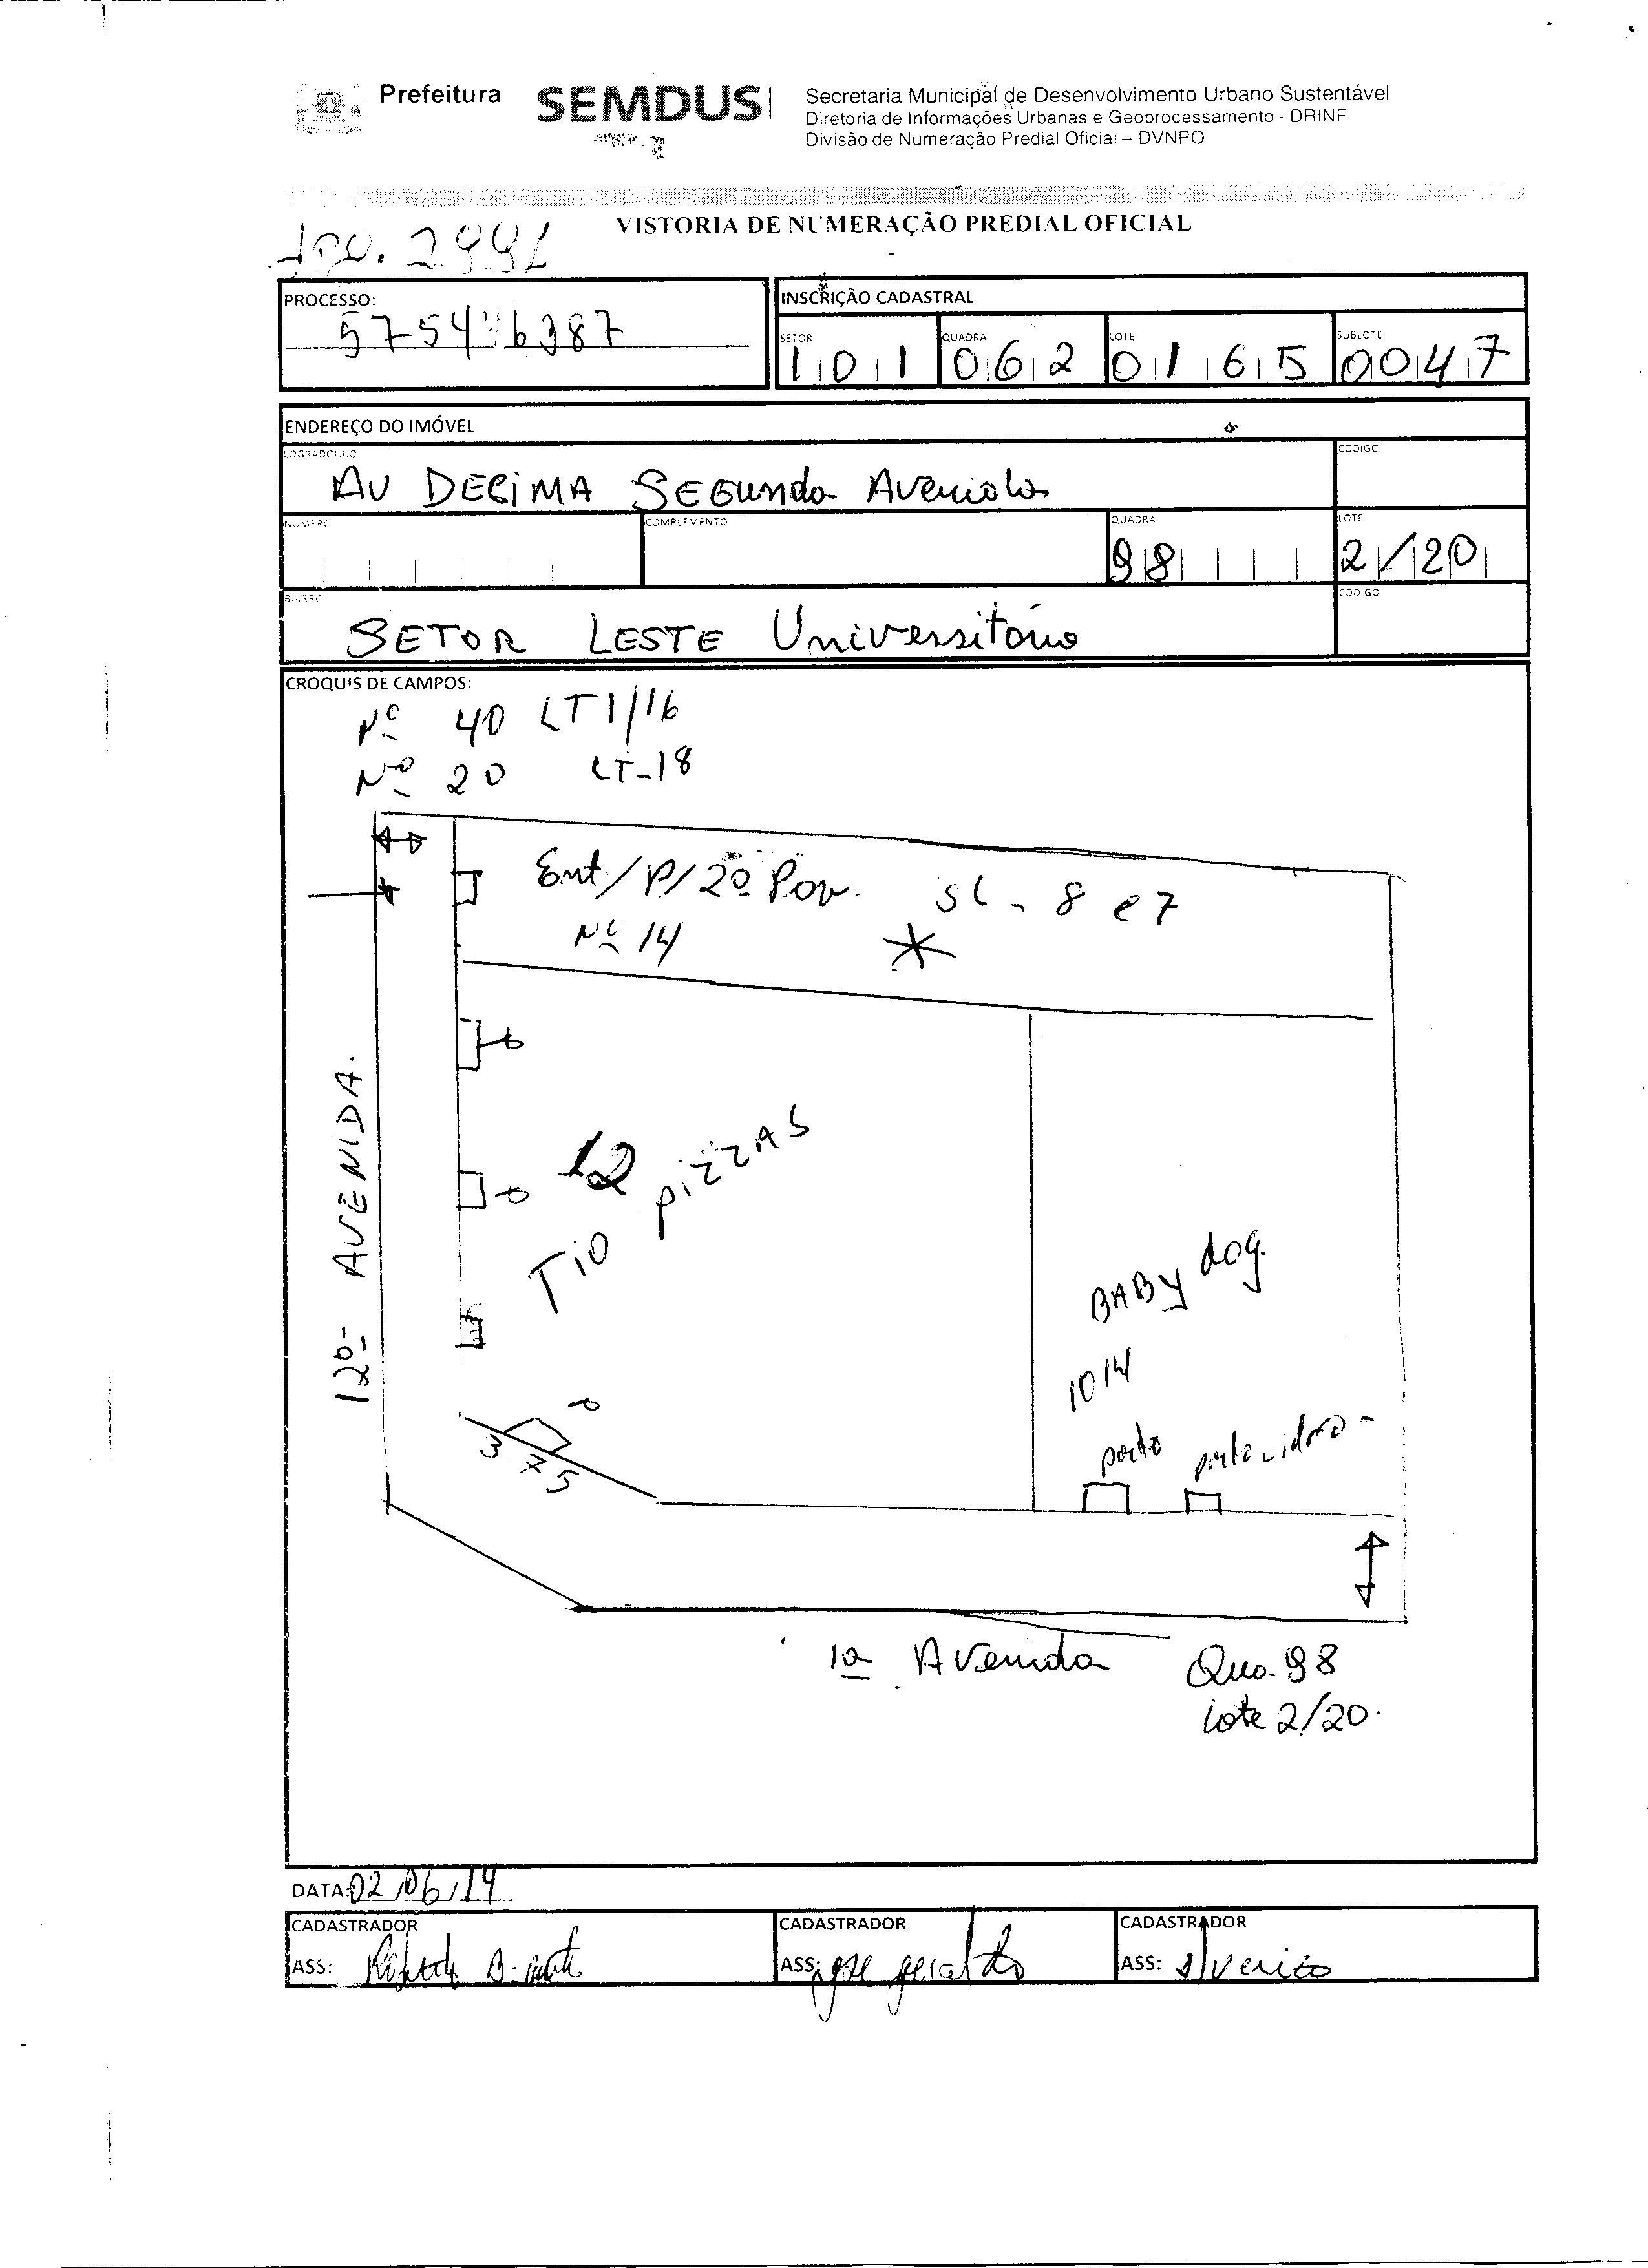 Prefeitura SEMDUS
Secretaria Municipal de Desenvolvimento Urbano Sustentável
Diretoria de Informações Urbanas e Geoprocessamento - DRINF
Divisão de Numeração Predial Oficial – DVNPO
VISTORIA DE NUMERAÇÃO PREDIAL OFICIAL
PROCESSO:
INSCRIÇÃO CADASTRAL
SETOR QUADRA LOTE SUBLOTE
101 062 0165 0047
ENDEREÇO DO IMÓVEL
LOGRADOURO CODIGO
AV DECIMA SEGunda Avenida
NUMERO COMPLEMENTO QUADRA LOTE
98 2/20
BAIRRO CODIGO
SETOR LESTE Universitário
CROQUIS DE CAMPOS:
Nº 40 LT 1/16
Nº 20 LT-18
Ent/P/2º Pav. SL - 8 e 7
Nº 14
12ª AVENIDA.
12
Tio pizzas
BABY dog.
1014
porta porta vidro
3.75
1ª Avenida
Qua. 98
Lote 2/20.
DATA: 02/06/14
CADASTRADOR CADASTRADOR CADASTRADOR
ASS: ASS: jose geraldo ASS: